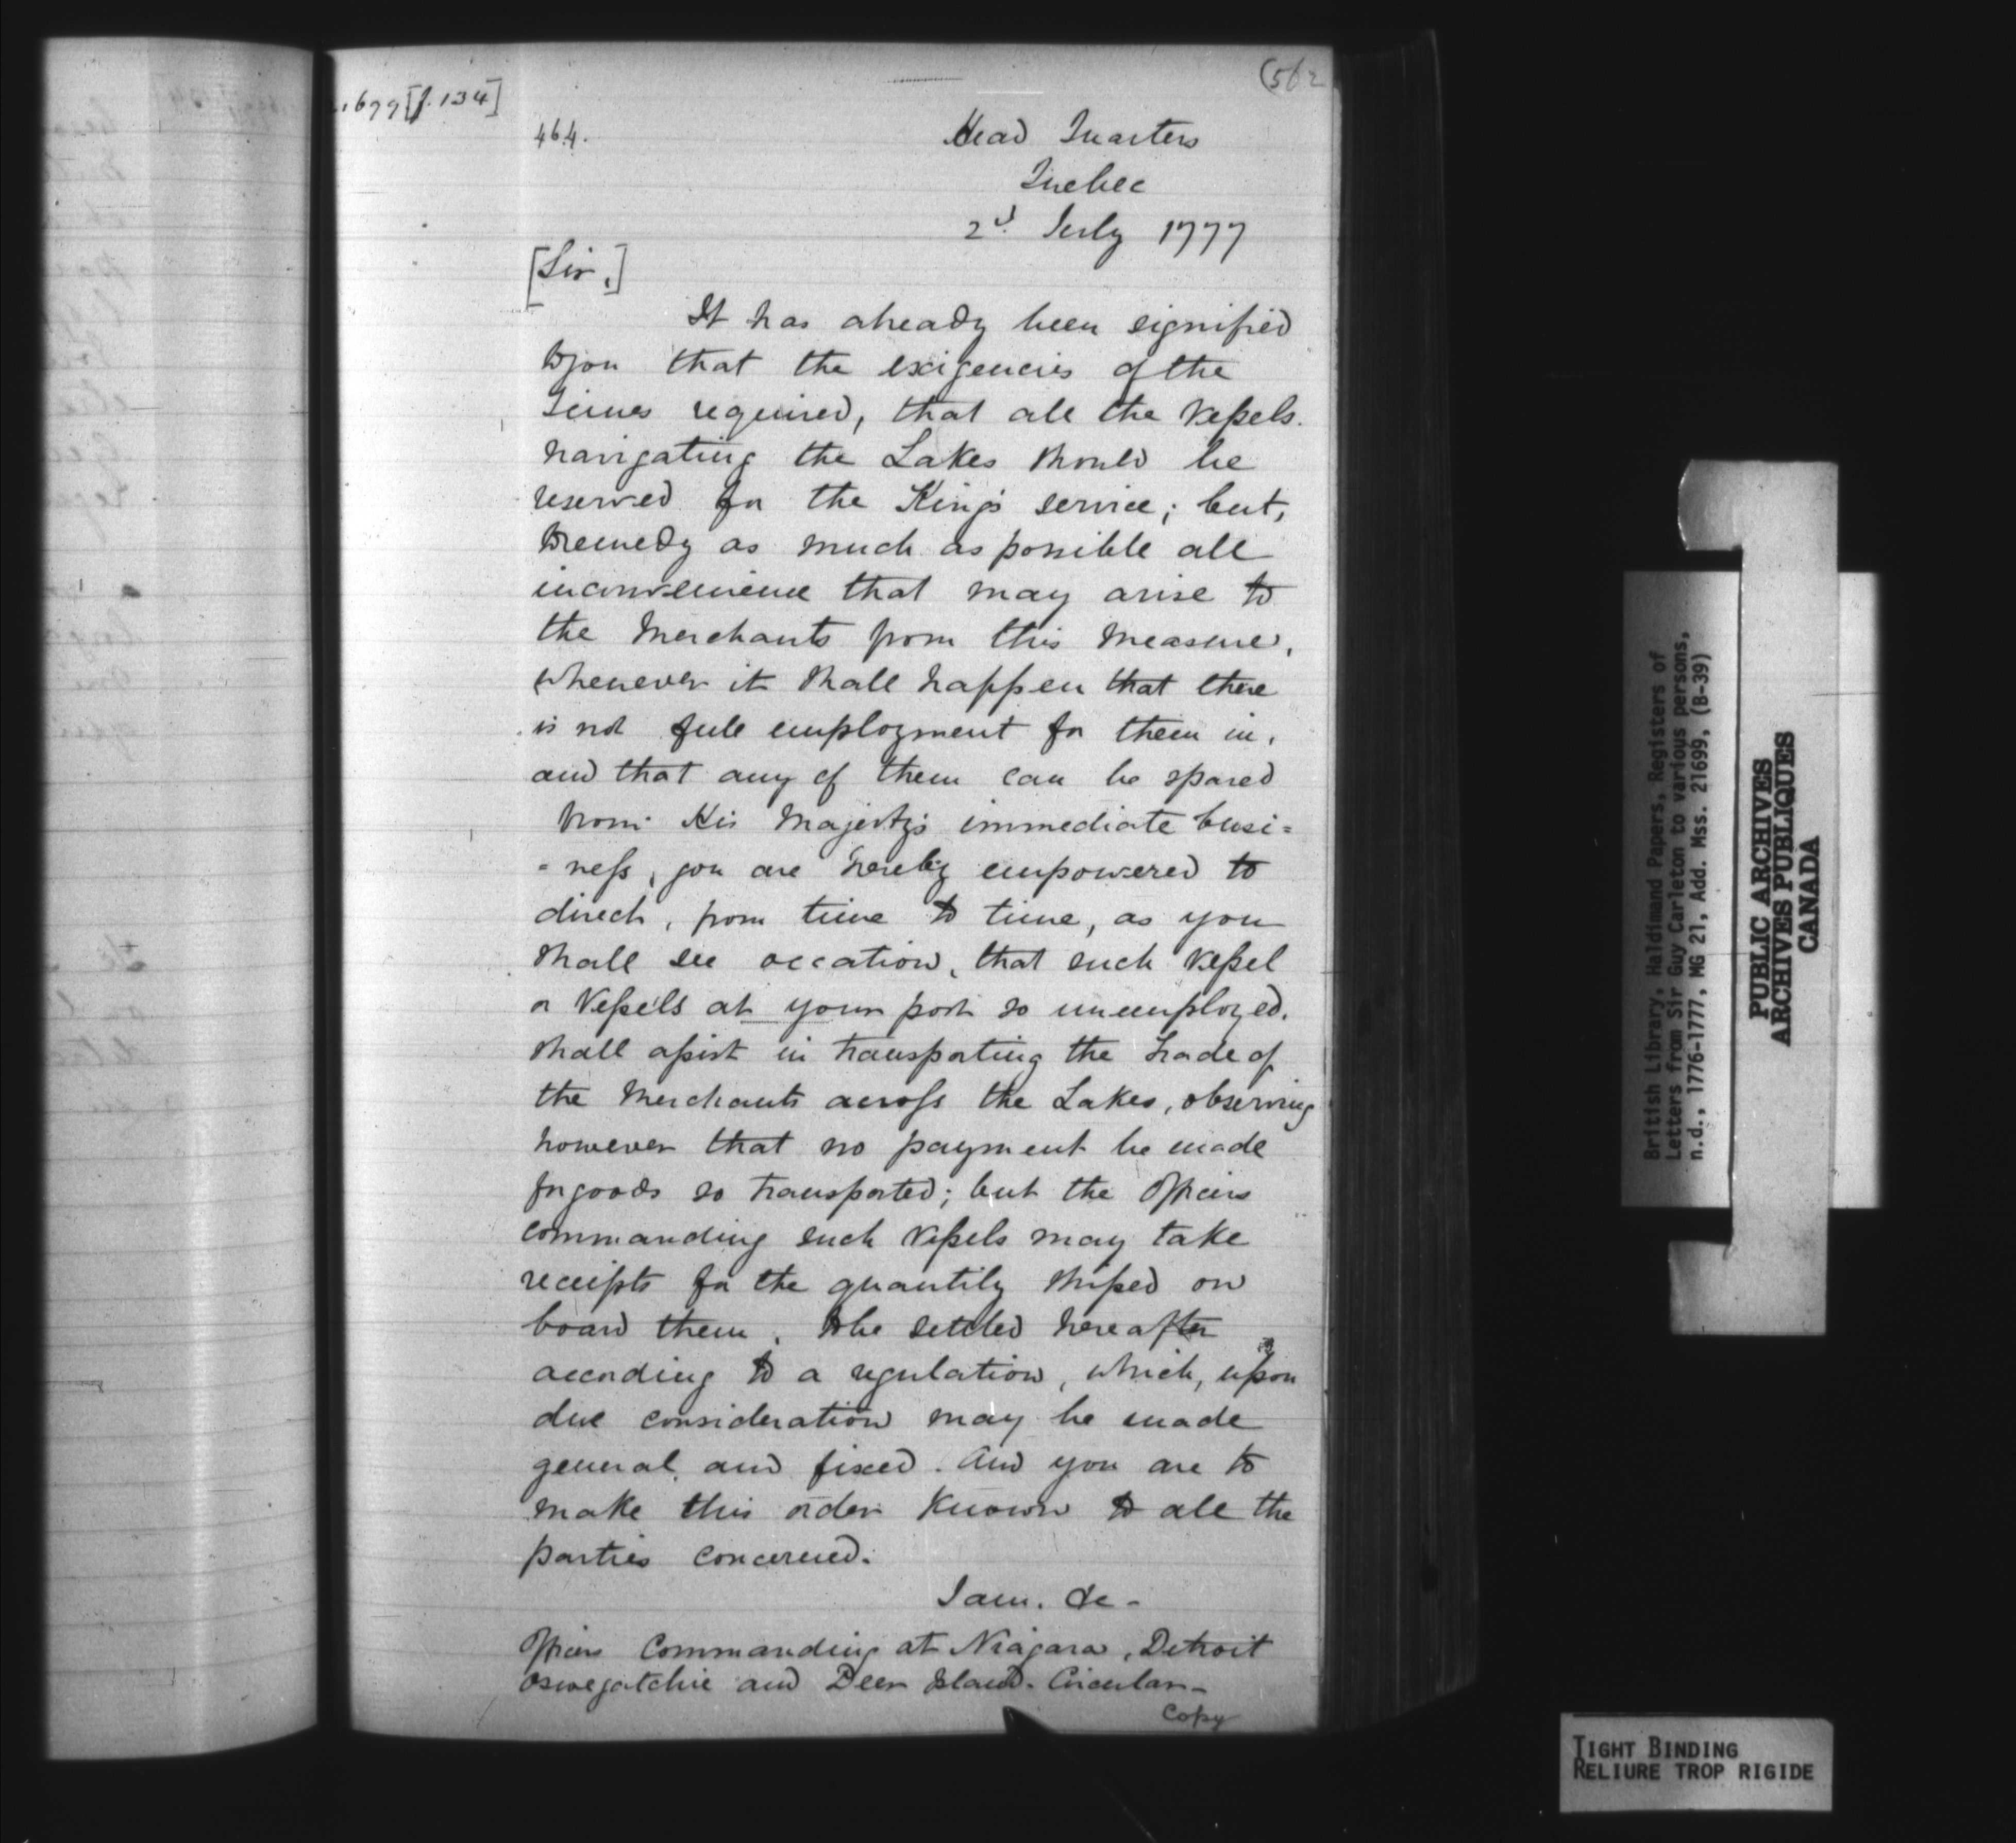 (562
1699 [f. 134]
464.
Head Quarters
Quebec
2d July 1777
[Sir,]
It has already been signified
to you that the exigencies of the
Times required, that all the Veſsels
navigating the Lakes should be
reserved for the King's service; but,
to remedy as much as possible all
inconvenience that may arise to
the Merchants from this measure,
whenever it shall happen that there
is not full employment for them in,
and that any of them can be spared
from His Majesty's immediate busi=
=neſs, you are hereby empowered to
direct, from time to time, as you
shall see occation, that such Veſsel
or Veſsels at your post so unemployed,
shall aſsist in transporting the trade of
the Merchants acroſs the Lakes, observing
however that no payment be made
for goods so transported; but the Officers
commanding such Veſsels may take
receipts for the quantity shiped on
board them, to be settled hereafter
according to a regulation, which, upon
due consideration may be made
general, and fixed. And you are to
make this order known to all the
parties concerned.
I am. &c -
Officers Commanding at Niagara, Detroit
Oswegatchie and Deer Island. Circular-
Copy
British Library, Haldimand Papers, Registers of
Letters from Sir Guy Carleton to various persons,
n.d., 1776-1777, MG 21, Add. Mss. 21699, (B-39)
PUBLIC ARCHIVES
ARCHIVES PUBLIQUES
CANADA
TIGHT BINDING
RELIURE TROP RIGIDE